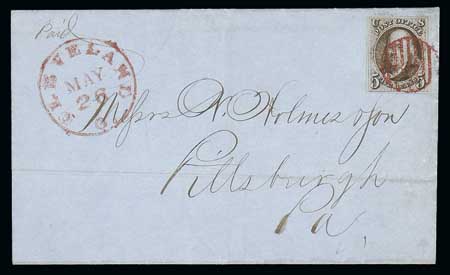 Paid
CLEVELAND O.
MAY
26
POST OFFICE
5 5
Messrs N. Holmes & Son
Pittsburgh
Pa